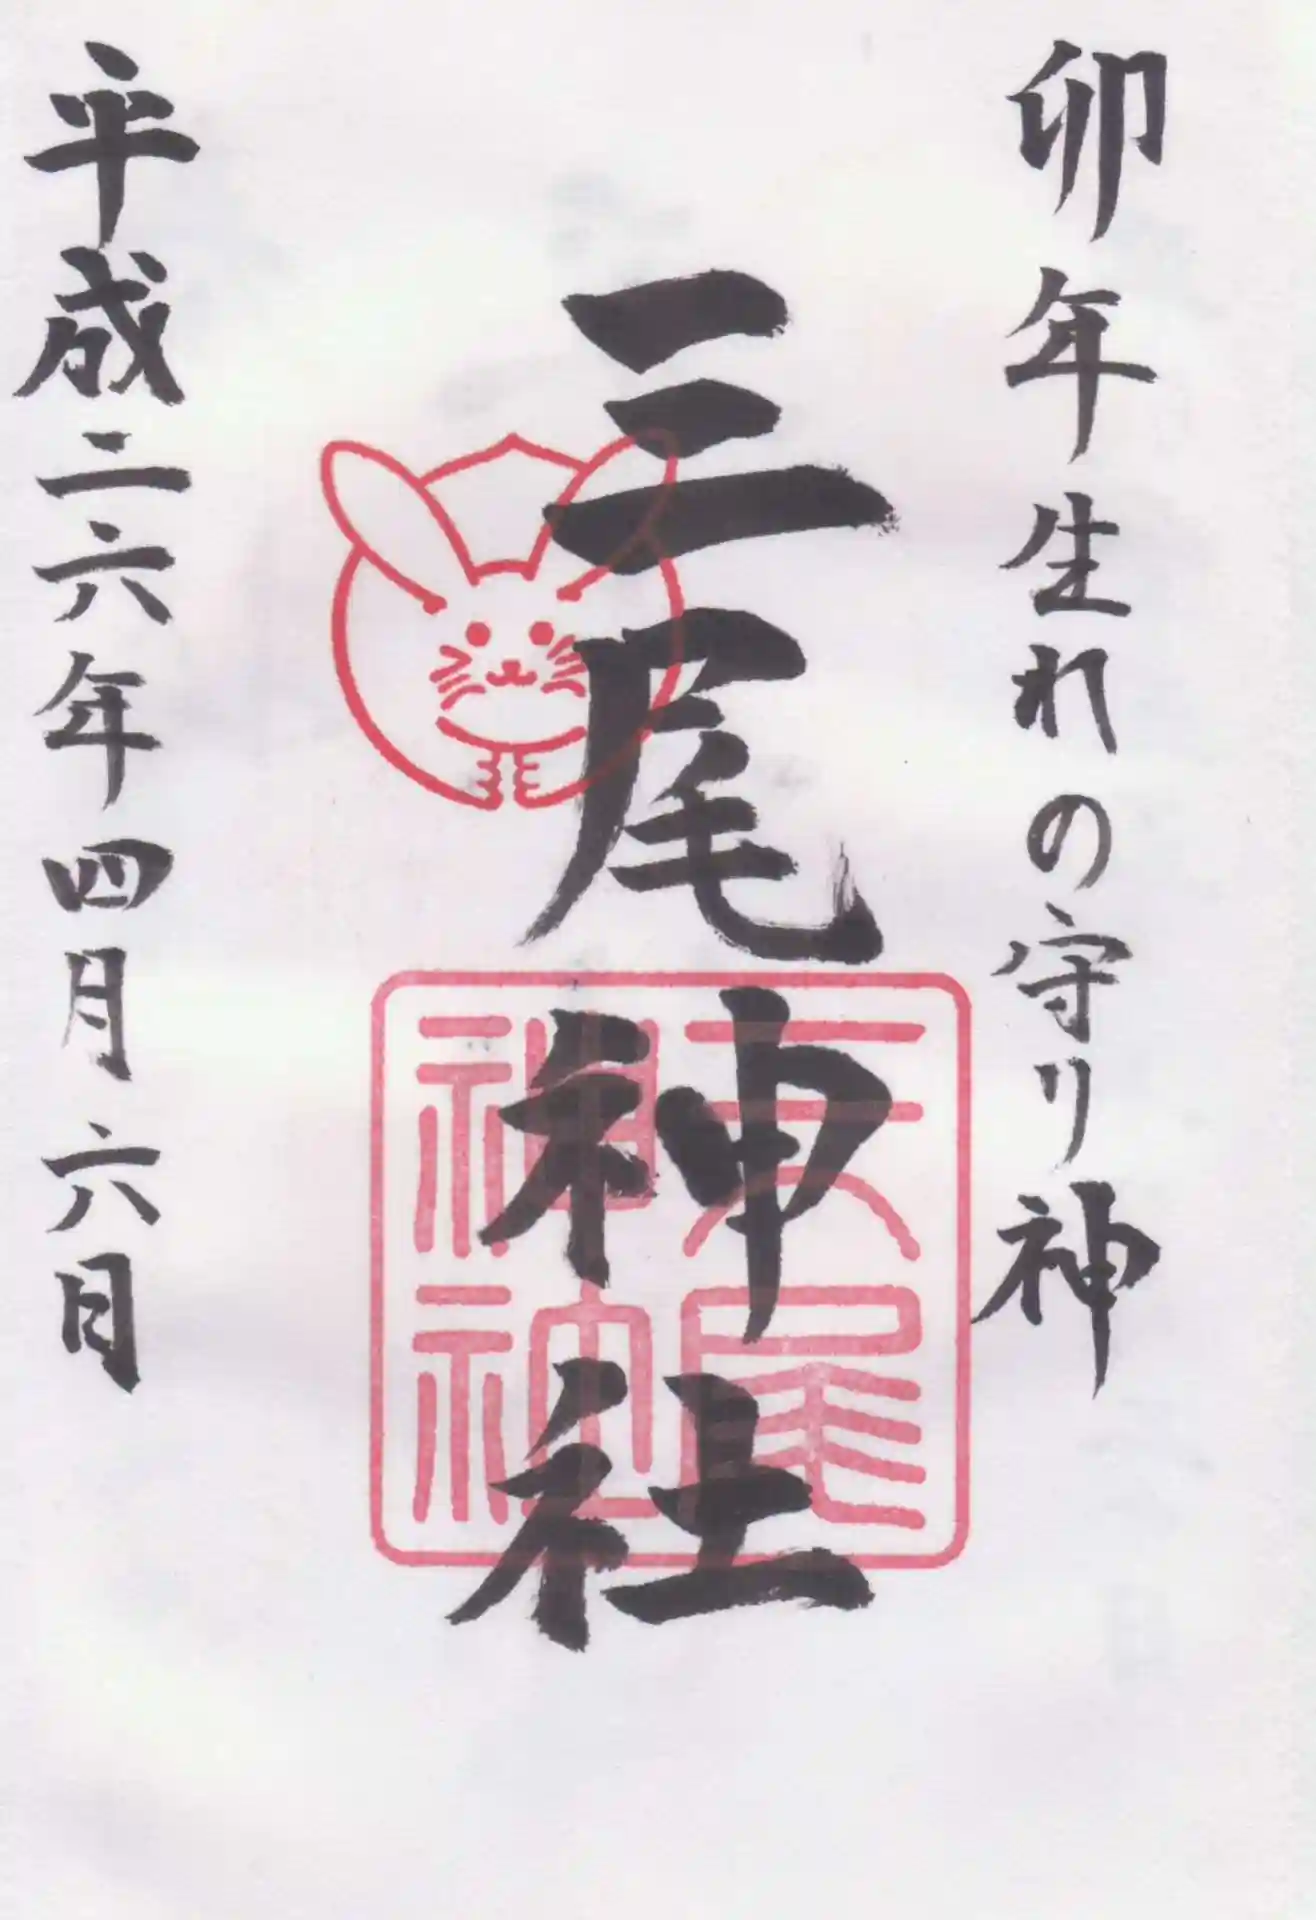 卯年生れの守り神
三尾神社
三尾神社
平成二六年四月六日